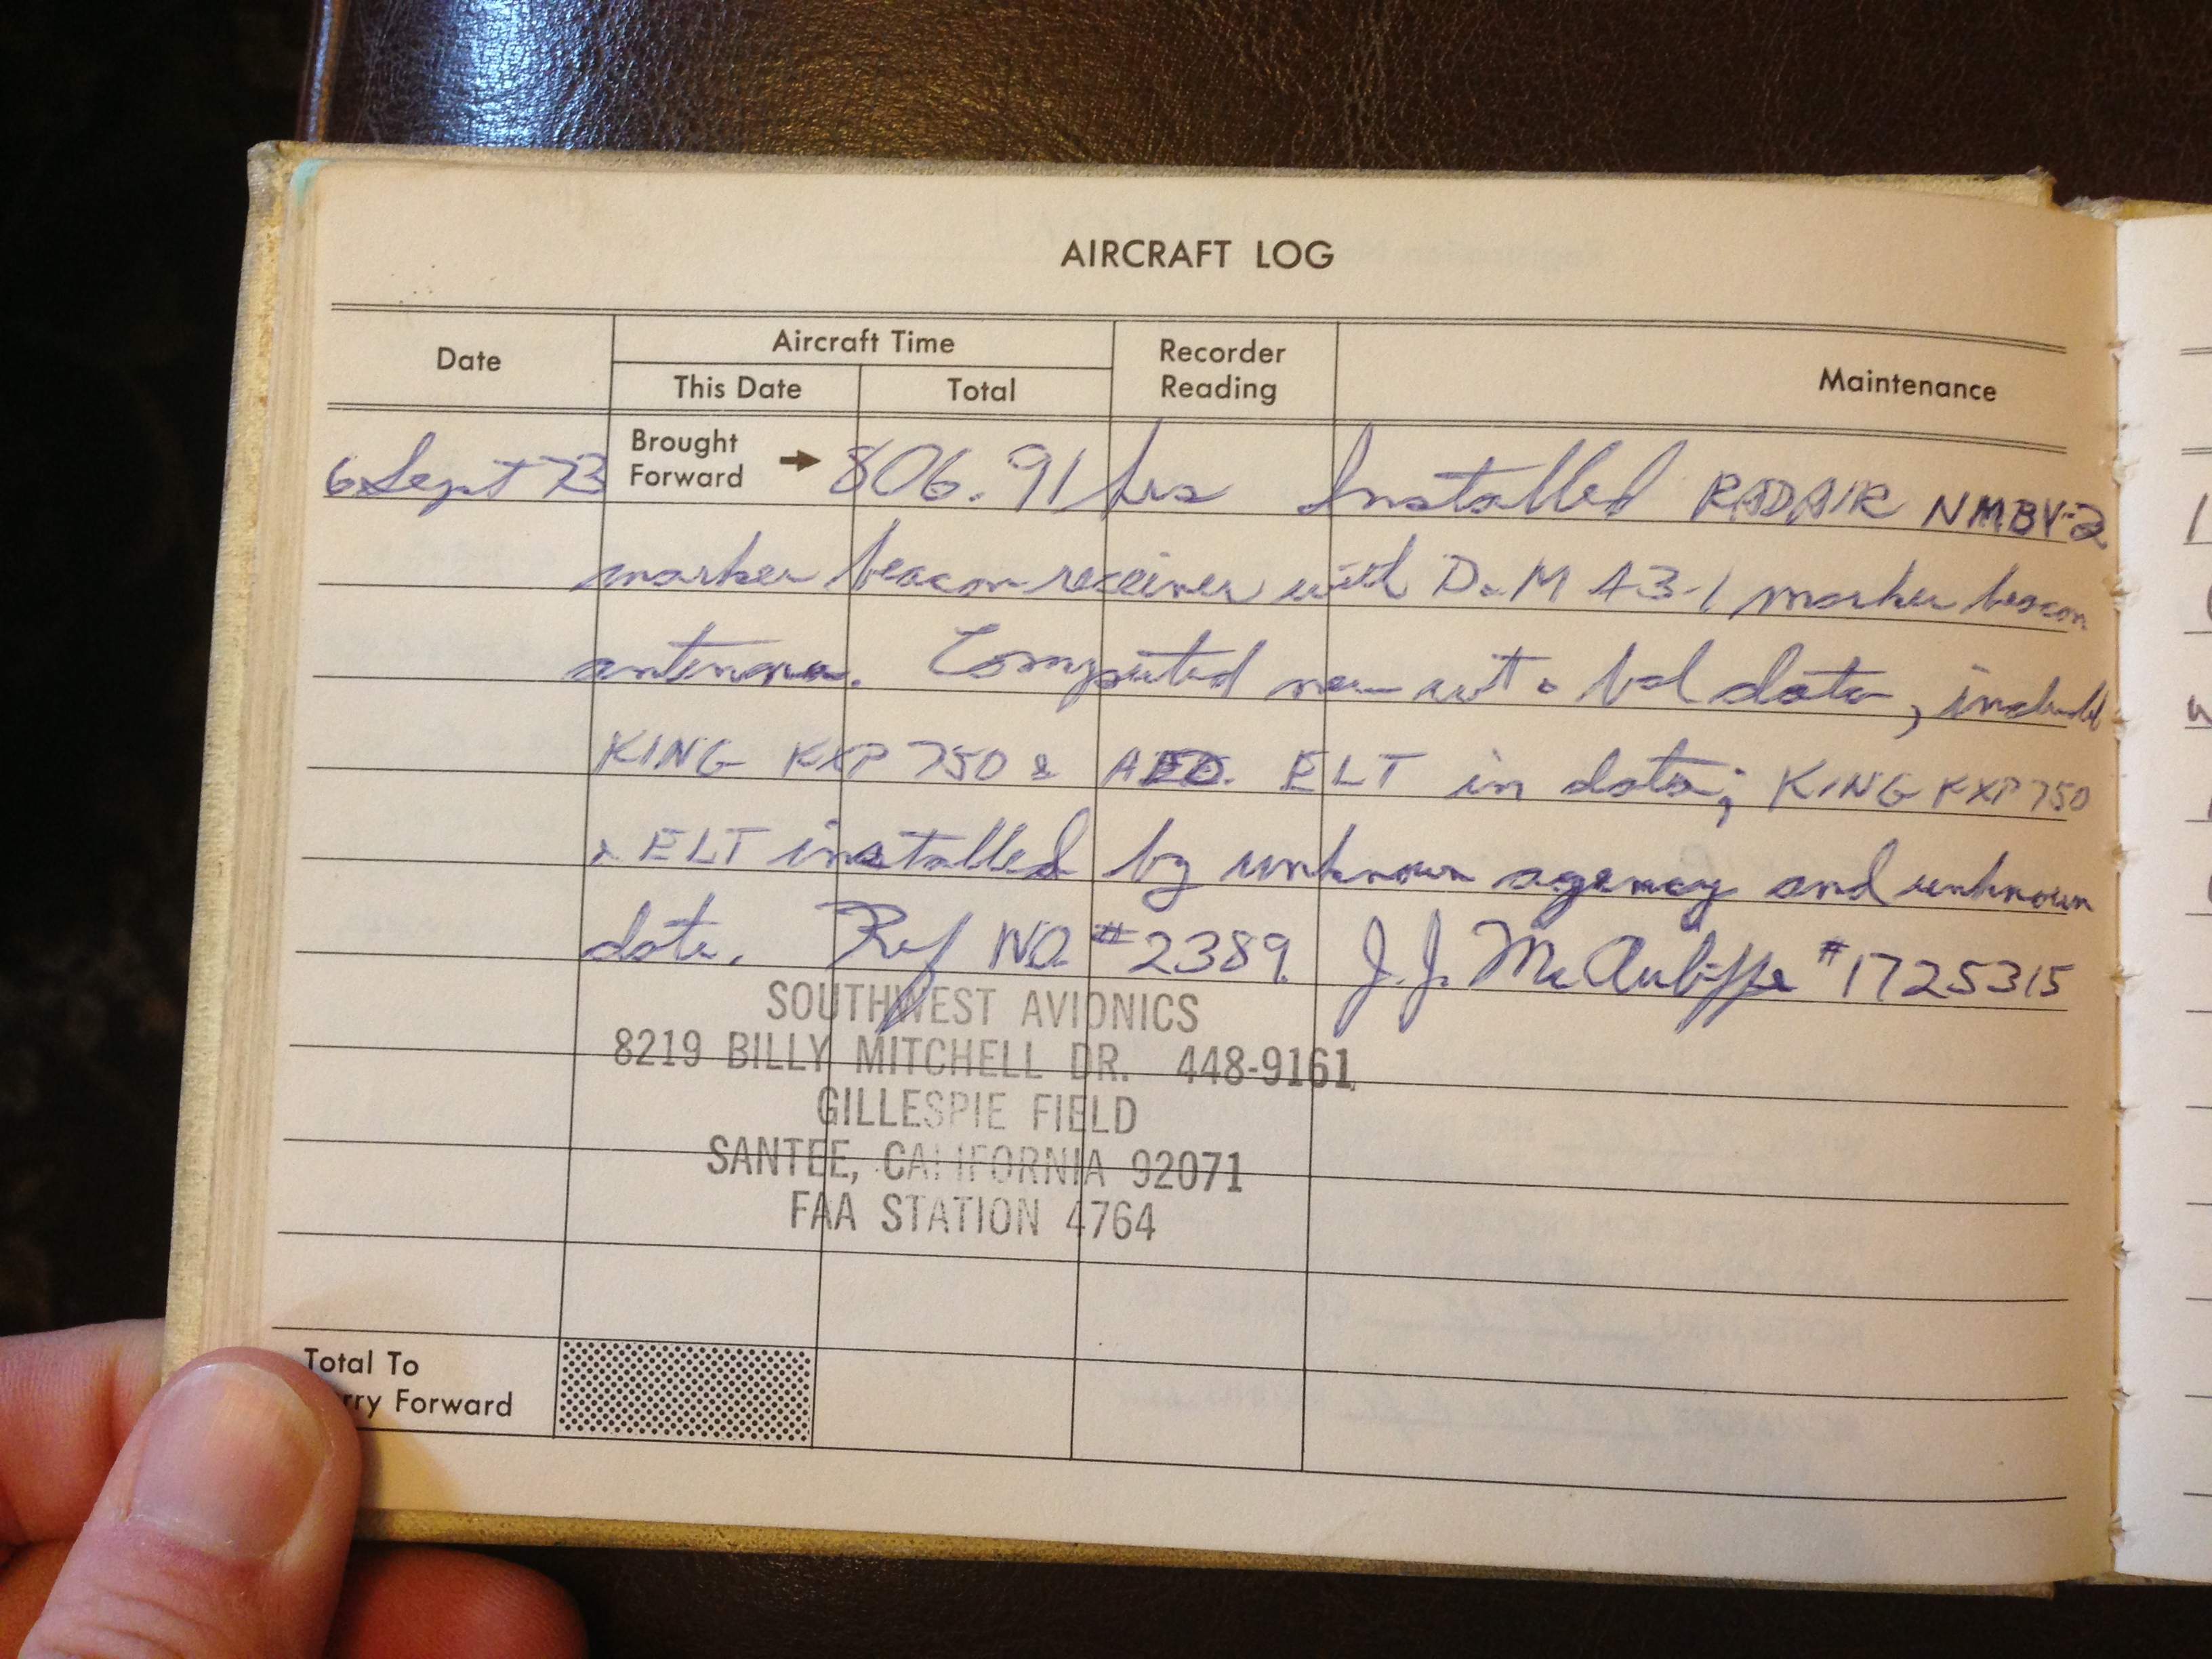 AIRCRAFT LOG
Date
Aircraft Time
This Date
Total
Recorder
Reading
Maintenance
6 Sept 73
Brought
Forward
806.91 hrs Installed RADAIR NMBV-2
marker beacon receiver with D&M A3-1 marker beacon
antenna. Computed new wt & bal data, included
KING KXP 750 & ELT in data; KING KXP 750
& ELT installed by unknown agency and unknown
date. Ref NO. #2389 J.J. McAuliffe #1725315
SOUTHWEST AVIONICS
8219 BILLY MITCHELL DR. 448-9161
GILLESPIE FIELD
SANTEE, CALIFORNIA 92071
FAA STATION 4764
Total To
rry Forward